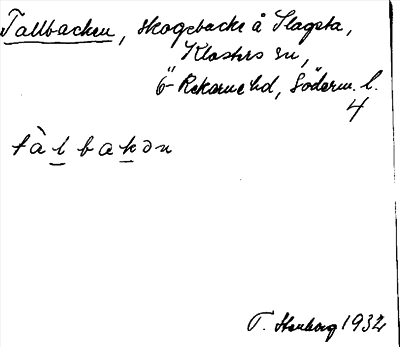 Tallbacken, skogsbacke å Slagsta,
Klosters sn,
Ö Rekarne hd, Söderm. l.
4
tàlbakən
T. 1932